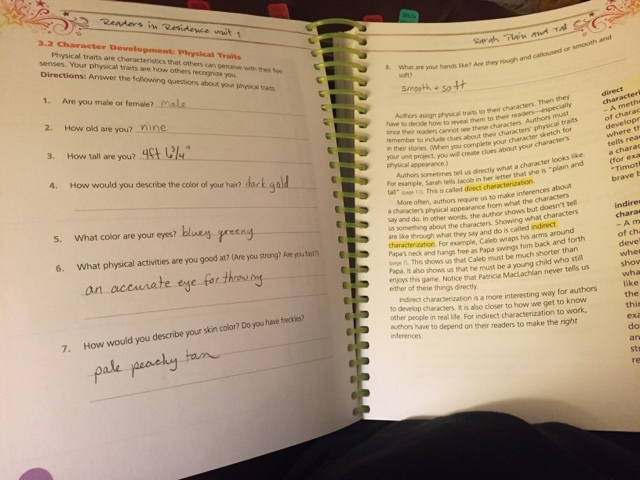 Readers in Residence unit 1
3.2 Character Development: Physical Traits
Physical traits are characteristics that others can perceive with their five
senses. Your physical traits are how others recognize you.
Directions: Answer the following questions about your physical traits.
1. Are you male or female? male
2. How old are you? nine
3. How tall are you? 4ft
4. How would you describe the color of your hair? dark gold
5. What color are your eyes? bluey greeny
6. What physical activities are you good at? (Are you strong? Are you fast?)
an accurate eye for throwing
7. How would you describe your skin color? Do you have freckles?
pale peachy tan
Sarah Plain and Tall
8. What are your hands like? Are they rough and calloused or smooth and
soft?
smooth + soft
Authors assign physical traits to their characters. Then they
have to decide how to reveal them to their readers—especially
since their readers cannot see these characters. Authors must
remember to include clues about their characters' physical traits
in their stories. (When you complete your character sketch for
your unit project, you will create clues about your character's
physical appearance.)
Authors sometimes tell us directly what a character looks like.
For example, Sarah tells Jacob in her letter that she is "plain and
tall" This is called direct characterization.
More often, authors require us to make inferences about
a character's physical appearance from what the characters
say and do. In other words, the author shows but doesn't tell
us something about the characters. Showing what characters
are like through what they say and do is called indirect
characterization. For example, Caleb wraps his arms around
Papa's neck and hangs free as Papa swings him back and forth
This shows us that Caleb must be much shorter than
Papa. It also shows us that he must be a young child who still
enjoys this game. Notice that Patricia MacLachlan never tells us
either of these things directly.
Indirect characterization is a more interesting way for authors
to develop characters. It is also closer to how we get to know
other people in real life. For indirect characterization to work,
authors have to depend on their readers to make the right
inferences.
direct
characteri
– A meth
of charac
developm
where t
tells rea
a charac
(for exa
"Timot
brave b
indirec
charac
– A m
of ch
deve
whe
show
wha
like
the
thi
exa
do
an
st
re